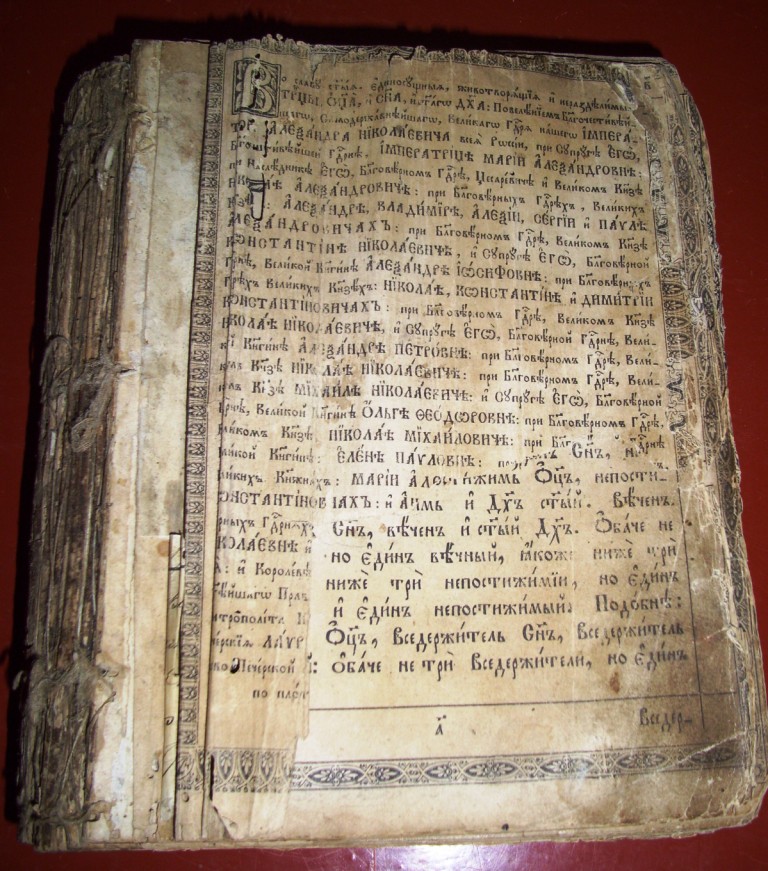 Во славу ст҃ыѧ, є҆диносꙋ́щныѧ, животворѧ́щїѧ и҆ нераздѣ́лимыѧ
Трⷪ҇цы, Ѻ҆ц҃а̀, и҆ Сн҃а, и҆ ст҃а́гѡ Дх҃а: Повелѣ́нїемъ Бл҃гочести́вѣй-
шагѡ, Самодержа́внѣйшагѡ, Вели́кагѡ Гдⷭ҇рѧ на́шегѡ І҆МПЕРА́-
ТОРА̀ А҆ЛЕѮА́НДРА НЇКОЛА́ЕВИЧА всеѧ̀ Рѡссі́и, при Сꙋпрꙋ́гѣ Є҆гѡ̀,
Бл҃гочести́вѣйшей Гдⷭ҇рнѣ, І҆МПЕРАТРИ́ЦѢ МАРІ́И А҆ЛЕѮА́НДРОВНѢ:
при Наслѣ́дникѣ Є҆гѡ̀, Бл҃говѣ́рномъ Гдⷭ҇рѣ, Цесаре́вичѣ и҆ Вели́комъ Кнѧ́зѣ
НЇКОЛА́Ѣ А҆ЛЕѮА́НДРОВИЧѢ: при Бл҃говѣ́рныхъ Гдⷭ҇рѣхъ, Вели́кихъ
Кнѧзѣ́хъ: А҆ЛЕѮА́НДРѢ, ВЛАДИ́МІРѢ, А҆ЛЕѮІ́И, СЕ́РГІИ и҆ ПА́ѴЛѢ
А҆ЛЕѮА́НДРОВИЧАХЪ: при Бл҃говѣ́рномъ Гдⷭ҇рѣ, Вели́комъ Кнѧ́зѣ
КѠНСТАНТІ́НѢ НЇКОЛА́ЕВИЧѢ, и҆ Сꙋпрꙋ́гѣ Є҆гѡ̀, Бл҃говѣ́рной
Гдⷭ҇рнѣ, Вели́кой Кнѧги́нѣ А҆ЛЕѮА́НДРѢ І҆Ѡ́СИФОВНѢ: при Бл҃говѣ́рныхъ
Гдⷭ҇рѣхъ Вели́кихъ Кнѧзѣ́хъ: НЇКОЛА́Ѣ, КѠНСТАНТІ́НѢ, и҆ ДИМИ́ТРІИ
КѠНСТАНТІ́НОВИЧАХЪ: при Бл҃говѣ́рномъ Гдⷭ҇рѣ, Вели́комъ Кнѧ́зѣ
НЇКОЛА́Ѣ НЇКОЛА́ЕВИЧѢ, и҆ Сꙋпрꙋ́гѣ Є҆гѡ̀, Бл҃говѣ́рной Гдⷭ҇рнѣ, Вели-
кой Кнѧги́нѣ А҆ЛЕѮА́НДРѢ ПЕТРО́ВНѢ: при Бл҃говѣ́рномъ Гдⷭ҇рѣ, Вели́-
комъ Кнѧ́зѣ НЇКОЛА́Ѣ НЇКОЛА́ЕВИЧѢ: при Бл҃говѣ́рномъ Гдⷭ҇рѣ, Вели́-
комъ Кнѧ́зѣ МЇХАИ́ЛѢ НЇКОЛА́ЕВИЧѢ: и҆ Сꙋпрꙋ́гѣ Є҆гѡ̀, Бл҃говѣ́рной
Гдⷭ҇рнѣ, Вели́кой Кнѧги́нѣ Ѻ҆́ЛЬГѢ ѲЕОДѠ́РОВНѢ: при Бл҃говѣ́рномъ Гдⷭ҇рѣ,
Вели́комъ Кнѧ́зѣ, НЇКОЛА́Ѣ МЇХА́ЙЛОВИЧѢ: при Сн҃ъ, Гдⷭ҇рнѣ
Вели́кой Кнѧги́нѣ: Є҆ЛЕ́НѢ ПА́ѴЛОВНѢ:
Вели́кихъ Кнѧжна́хъ: МАРІ́И Ѻ҆ц҃ъ, непости-
КѠНСТАНТІ́НОВНАХЪ: и҆ и҆ Дх҃ъ ст҃ы́й. Вѣ́ченъ
Сн҃ъ, вѣ́ченъ и҆ ст҃ы́й Дх҃ъ. Ѻ҆ба́че не
НЇКОЛА́ЕВНѢ и҆ но є҆ди́нъ вѣ́чный, ꙗ҆́коже нижѐ трѝ
и҆ Короле́вѣ нижѐ трѝ непостижи́мїи, но є҆ди́нъ
и҆ є҆ди́нъ непостижи́мый. Подо́бнѣ:
Ѻ҆ц҃ъ, Вседержи́тель Сн҃ъ, Вседержи́тель
ЛА́ѴР
Пече́рской Ѻ҆ба́че не трѝ Вседержи́тели, но є҆ди́нъ
по пло́т
Вседер-